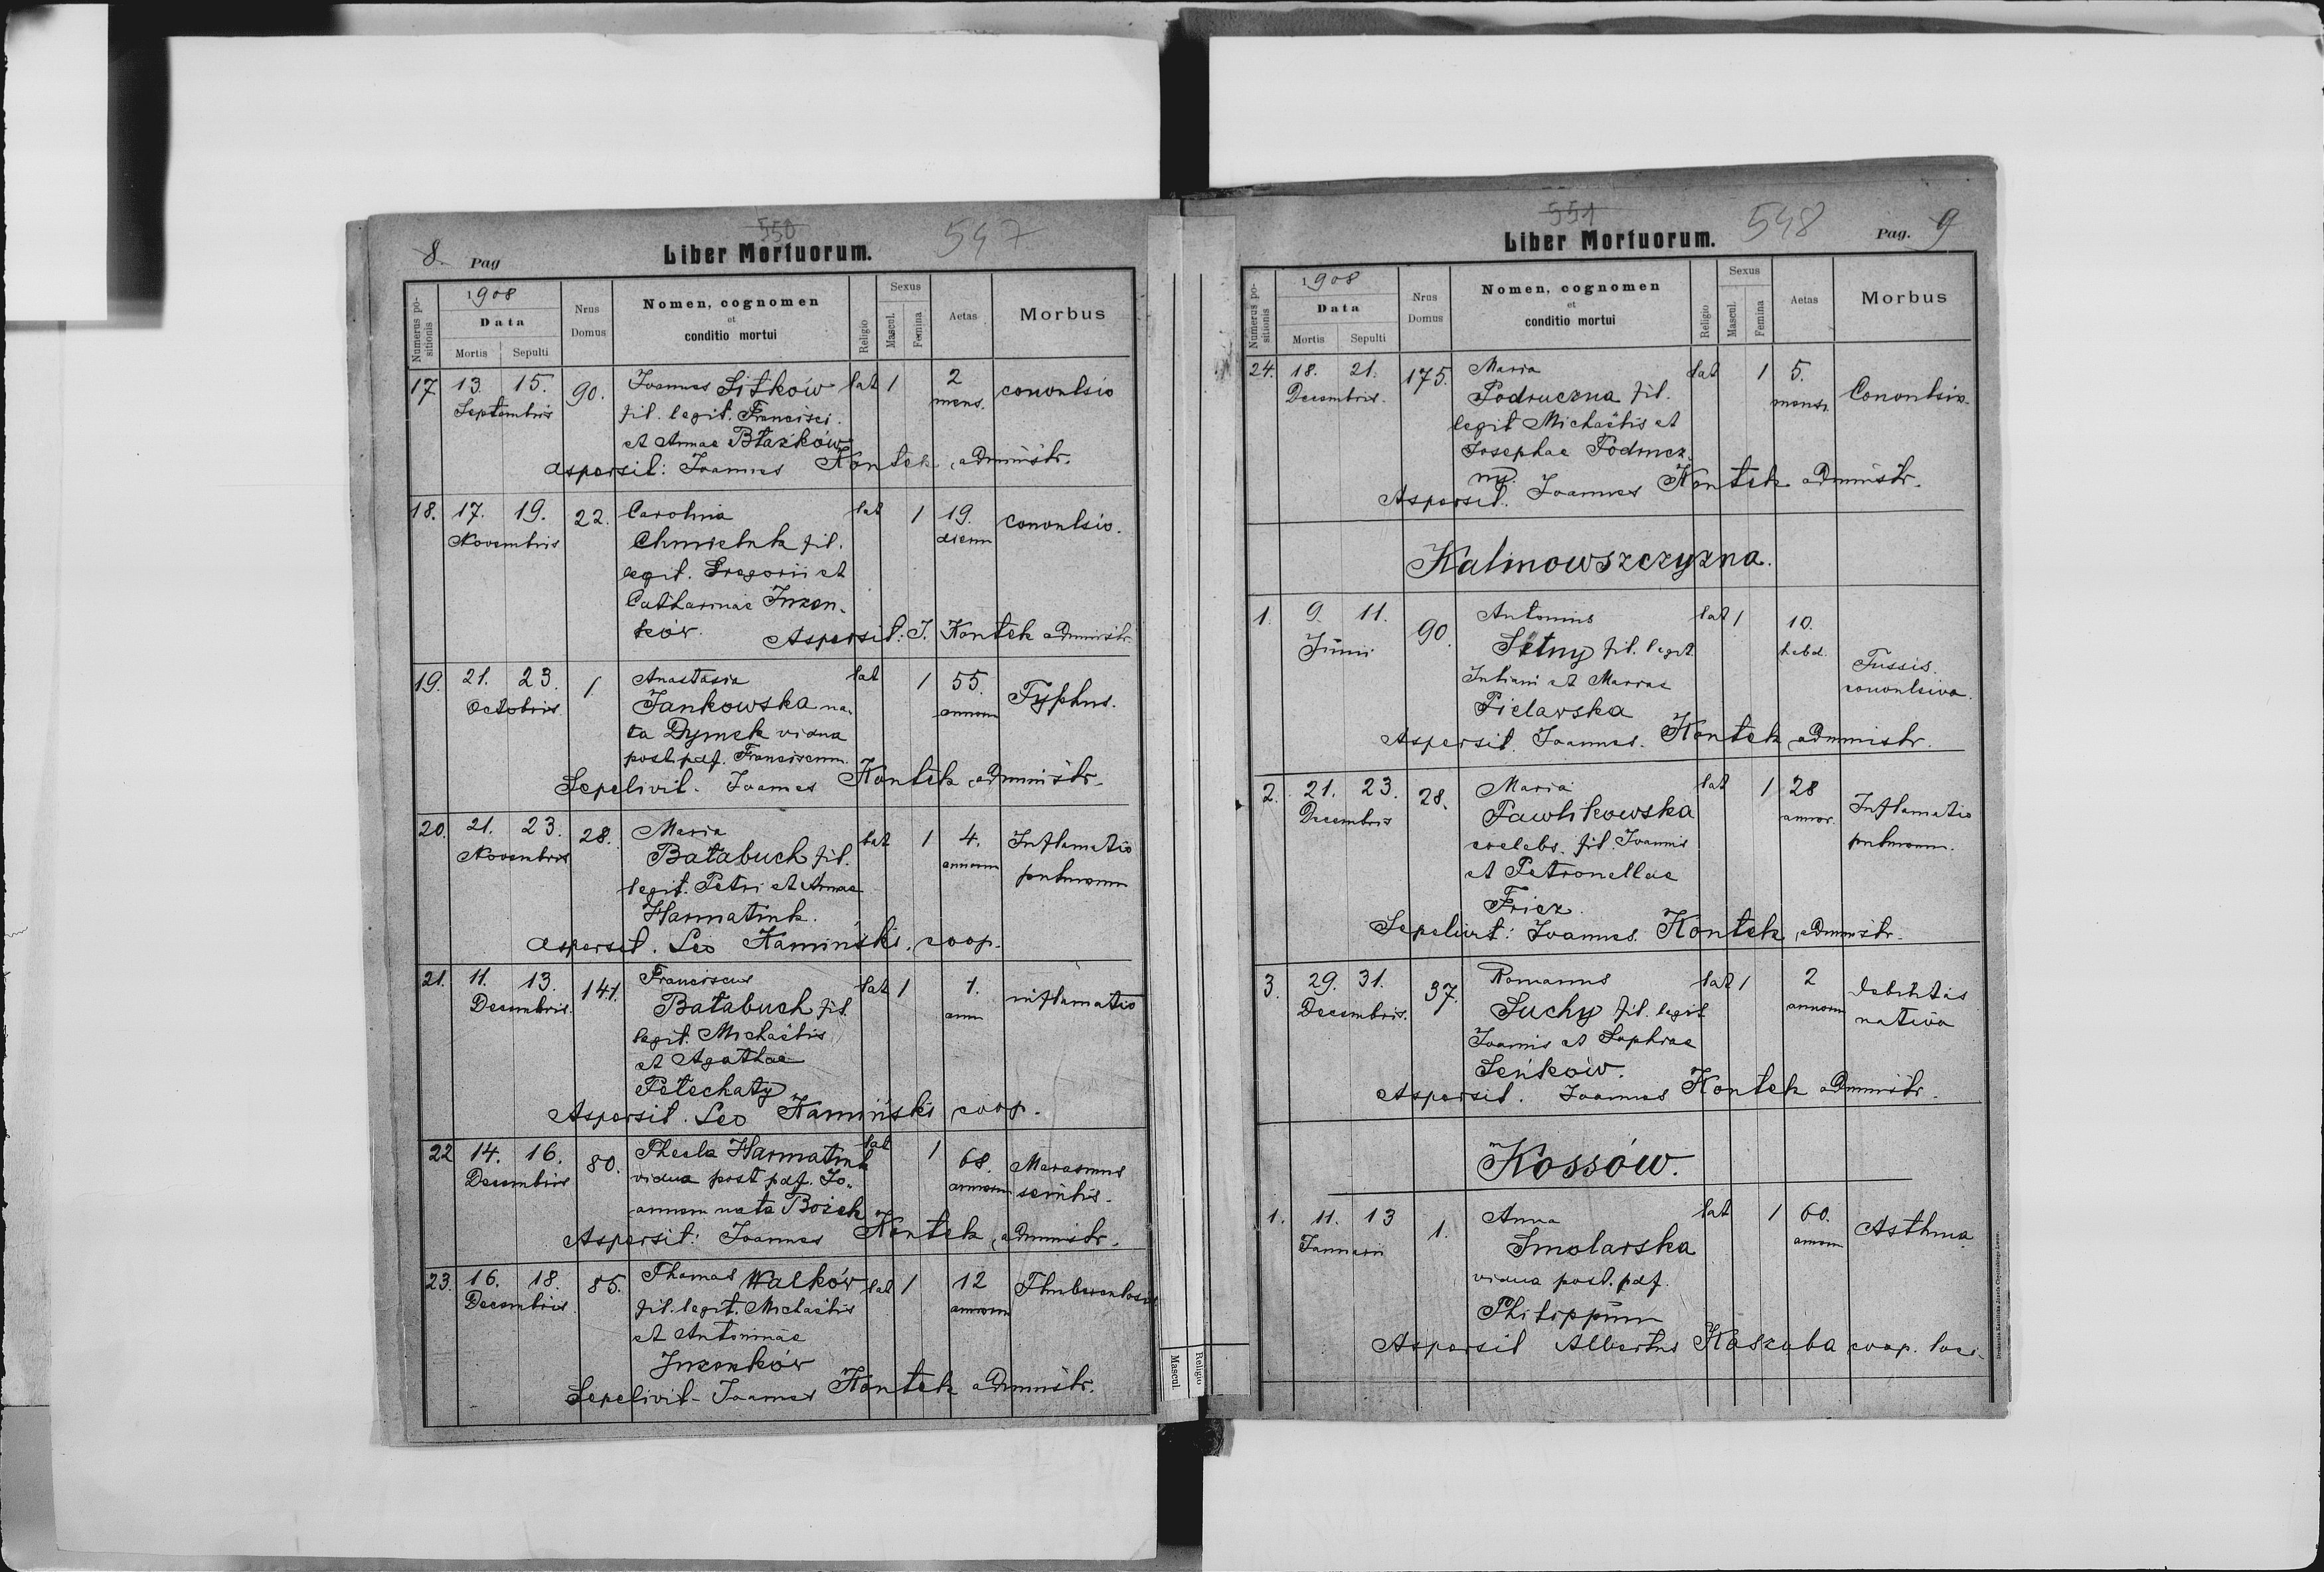 8. Pag
550
Liber Mortuorum.
547
Numerus positionis
1908
Data
Mortis Sepulti
Nrus Domus
Nomen, cognomen
et
conditio mortui
Religio
Sexus
Mascul. Femina
Aetas
Morbus
17 13. 15. 90. Joannes Sitków lat 1 2 convulsio
Septembris fil. legit. Francisci mens.
et Annae Błażków
aspersit: Joannes Kontek administr.
18. 17. 19. 22. Carolina lat 1 19. convulsio.
Novembris Chmieluk fil. dierum
legit. Gregorii et
Catharinae
ków. Aspersit: J. Kontek administr.
19. 21. 23. 1. Anastasia lat 1 55. Typhus.
Octobris Jankowska na-
ta Dymek vidua annorum
post pdf. Franciscum.
Sepelivit. Joannes Kontek administr.
20. 21. 23. 28. Maria lat 1 4. Inflamatio
Novembris Bałabuch fil. annorum pulmonum
legit. Petri et Annae
Harmatiuk.
aspersit. Leo Kamiński, coop.
21. 11. 13. 141. Franciscus lat 1 1. inflamatio
Decembris. Bałabuch fil. anni
legit. Michaëlis
et Agathae
Petechaty
Aspersit. Leo Kamiński coop.
22 14. 16. 80. Thecla Harmatiuk lat 1 68. Marasmus
Decembris vidua post pdf. Jo- annorum senilis.
annem nata Bożek
Aspersit: Joannes Kontek, administr.
23. 16. 18. 85. Thomas Walków lat 1 12
Decembris fil. legit. Michaëlis annorum
et Antoninae
Sepelivit - Joannes Kontek administr.
551
Liber Mortuorum.
548
Pag. 9
Numerus positionis
1908
Data
Mortis Sepulti
Nrus Domus
Nomen, cognomen
et
conditio mortui
Religio
Sexus
Mascul. Femina
Aetas
Morbus
24. 18. 21. 175. Maria lat 1 5. Convulsio.
Decembris. Podruczna fil. mens.
legit Michaëlis et
Josephae Podrucz
ny.
Aspersit. Joannes Kontek administr.
Kalinowszczyzna.
1. 9. 11. 90. Antonius lat 1 10.
Junii Sitny fil. legit. hebd. Tussis
Juliani et Mariae convulsiva.
Pielarska
Aspersit. Joannes. Kontek, administr.
2. 21. 23. 28. Maria lat 1 28 Inflamatio
Decembris Pawlikowska annor. pulmonum.
coelebs. fil. Joannis
et Petronellae
Fricz.
Sepelivit: Joannes. Kontek, administr.
3. 29. 31. 37. Romanus lat 1 2 debilitas
Decembris. Suchy fil. legit. annorum nativa
Joannis et Sophiae
Seńków.
Aspersit. Joannes Kontek administr.
Kossów.
1. 11. 13 1. Anna lat 1 60. Asthma
Januarii Smolarska annorum
vidua post. pdf.
Philippum
Aspersit Albertus Kaszuba coop. loci.
Religio
Mascul.